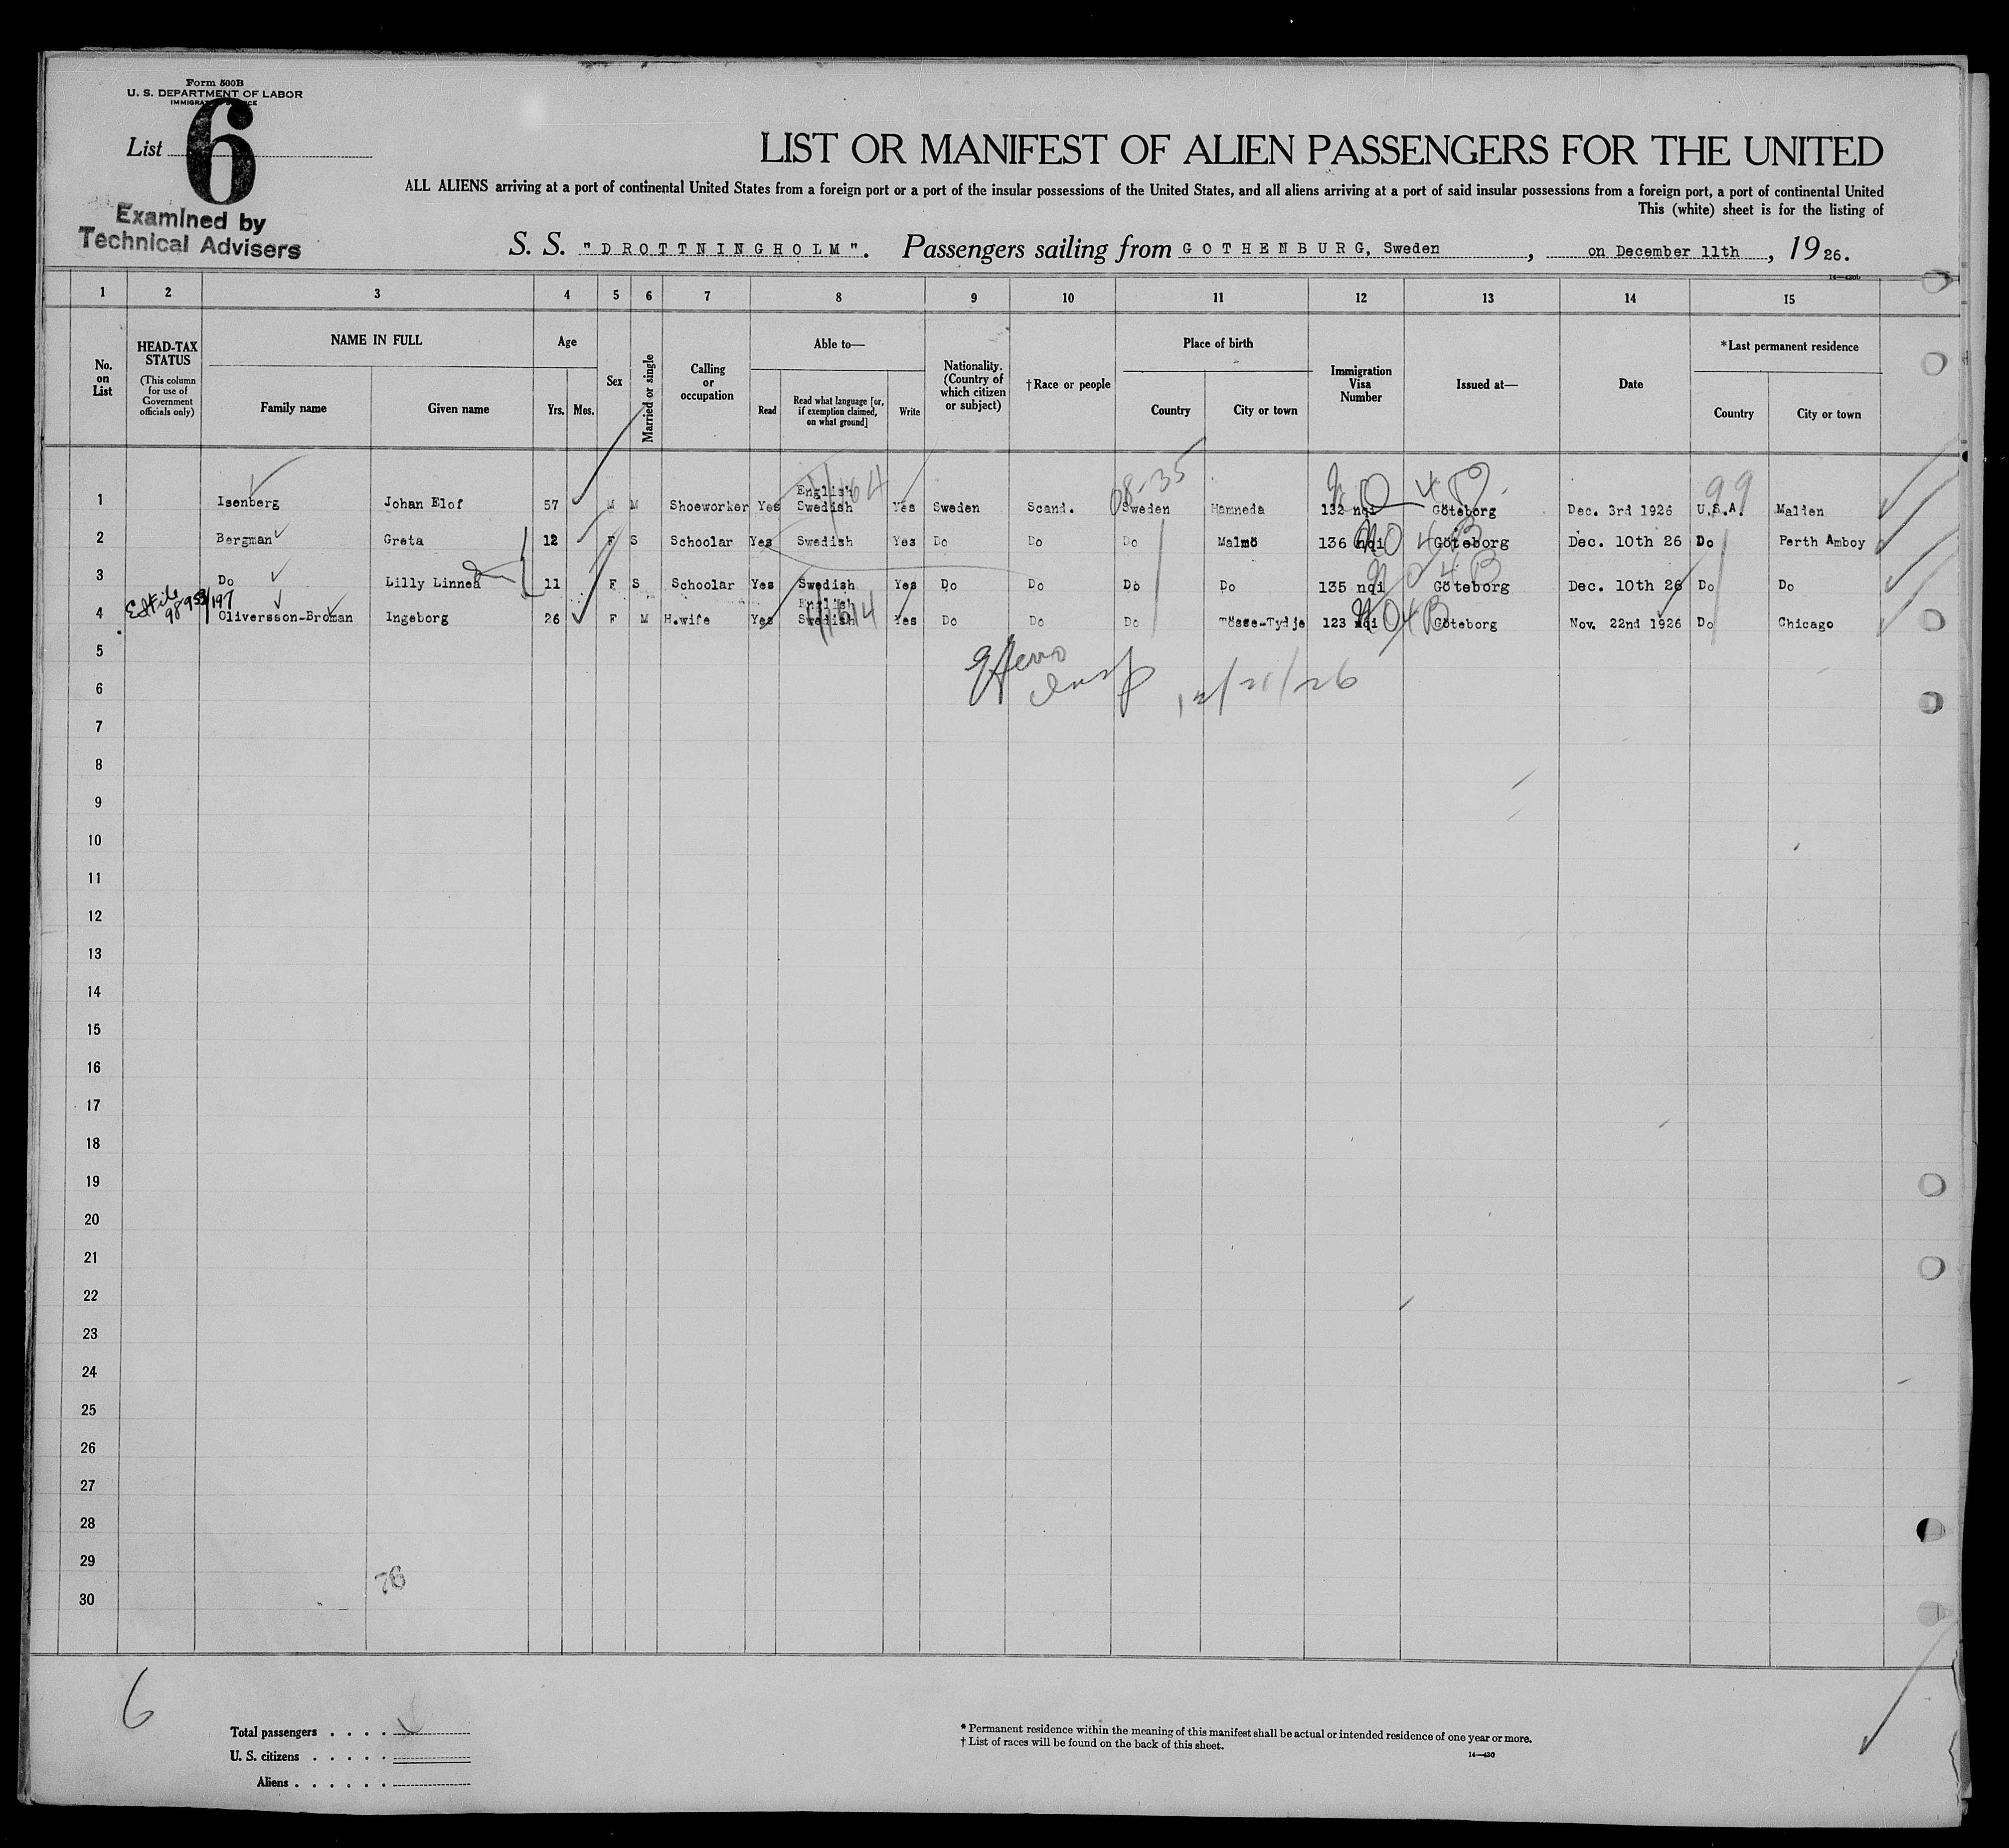 Form 500B
U. S. DEPARTMENT OF LABOR
List 6
Examined by
Technical Advisers
LIST OR MANIFEST OF ALIEN PASSENGERS FOR THE UNITED
ALL ALIENS arriving at a port of continental United States from a foreign port or a port of the insular possessions of the United States, and all aliens arriving at a port of said insular possessions from a foreign port, a port of continental United
This (white) sheet is for the listing of
S. S. "DROTTNINGHOLM". Passengers sailing from GOTHENBURG, Sweden, on December 11th, 1926.
1 2 3 4 5 6 7 8 9 10 11 12 13 14 15
No. on List
HEAD-TAX STATUS (This column for use of Government officials only)
NAME IN FULL
Family name Given name
Age
Yrs. Mos.
Sex
Married or single
Calling or occupation
Able to—
Read
Read what language [or, if exemption claimed, on what ground]
Write
Nationality. (Country of which citizen or subject)
†Race or people
Place of birth
Country City or town
Immigration Visa Number
Issued at—
Date
*Last permanent residence
Country City or town
08-35 99
1 Isenberg Johan Elof 57 M M Shoeworker Yes English Swedish Yes Sweden Scand. Sweden Hamneda 132 nqi Göteborg Dec. 3rd 1926 U.S.A. Malden
2 Bergman Greta 12 F S Schoolar Yes Swedish Yes Do Do Do Malmö 136 nqi Göteborg Dec. 10th 26 Do Perth Amboy
3 Do Lilly Linnea 11 F S Schoolar Yes Swedish Yes Do Do Do Do 135 nqi Göteborg Dec. 10th 26 Do Do
4 Oliversson-Broman Ingeborg 26 F M H.wife Yes English Swedish Yes Do Do Do Tösse-Tydje 123 nqi Göteborg Nov. 22nd 1926 Do Chicago
5
6 12/21/26
7
8
9
10
11
12
13
14
15
16
17
18
19
20
21
22
23
24
25
26
27
28
29
30
76
6
Total passengers . . . .
U. S. citizens . . . . .
Aliens . . . . . .
* Permanent residence within the meaning of this manifest shall be actual or intended residence of one year or more.
† List of races will be found on the back of this sheet.
14—430